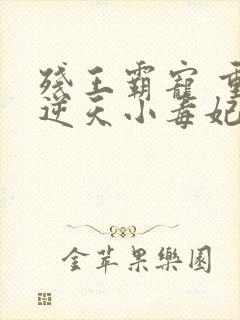 残王霸寵 重
逆天小毒妃
金苹果樂園